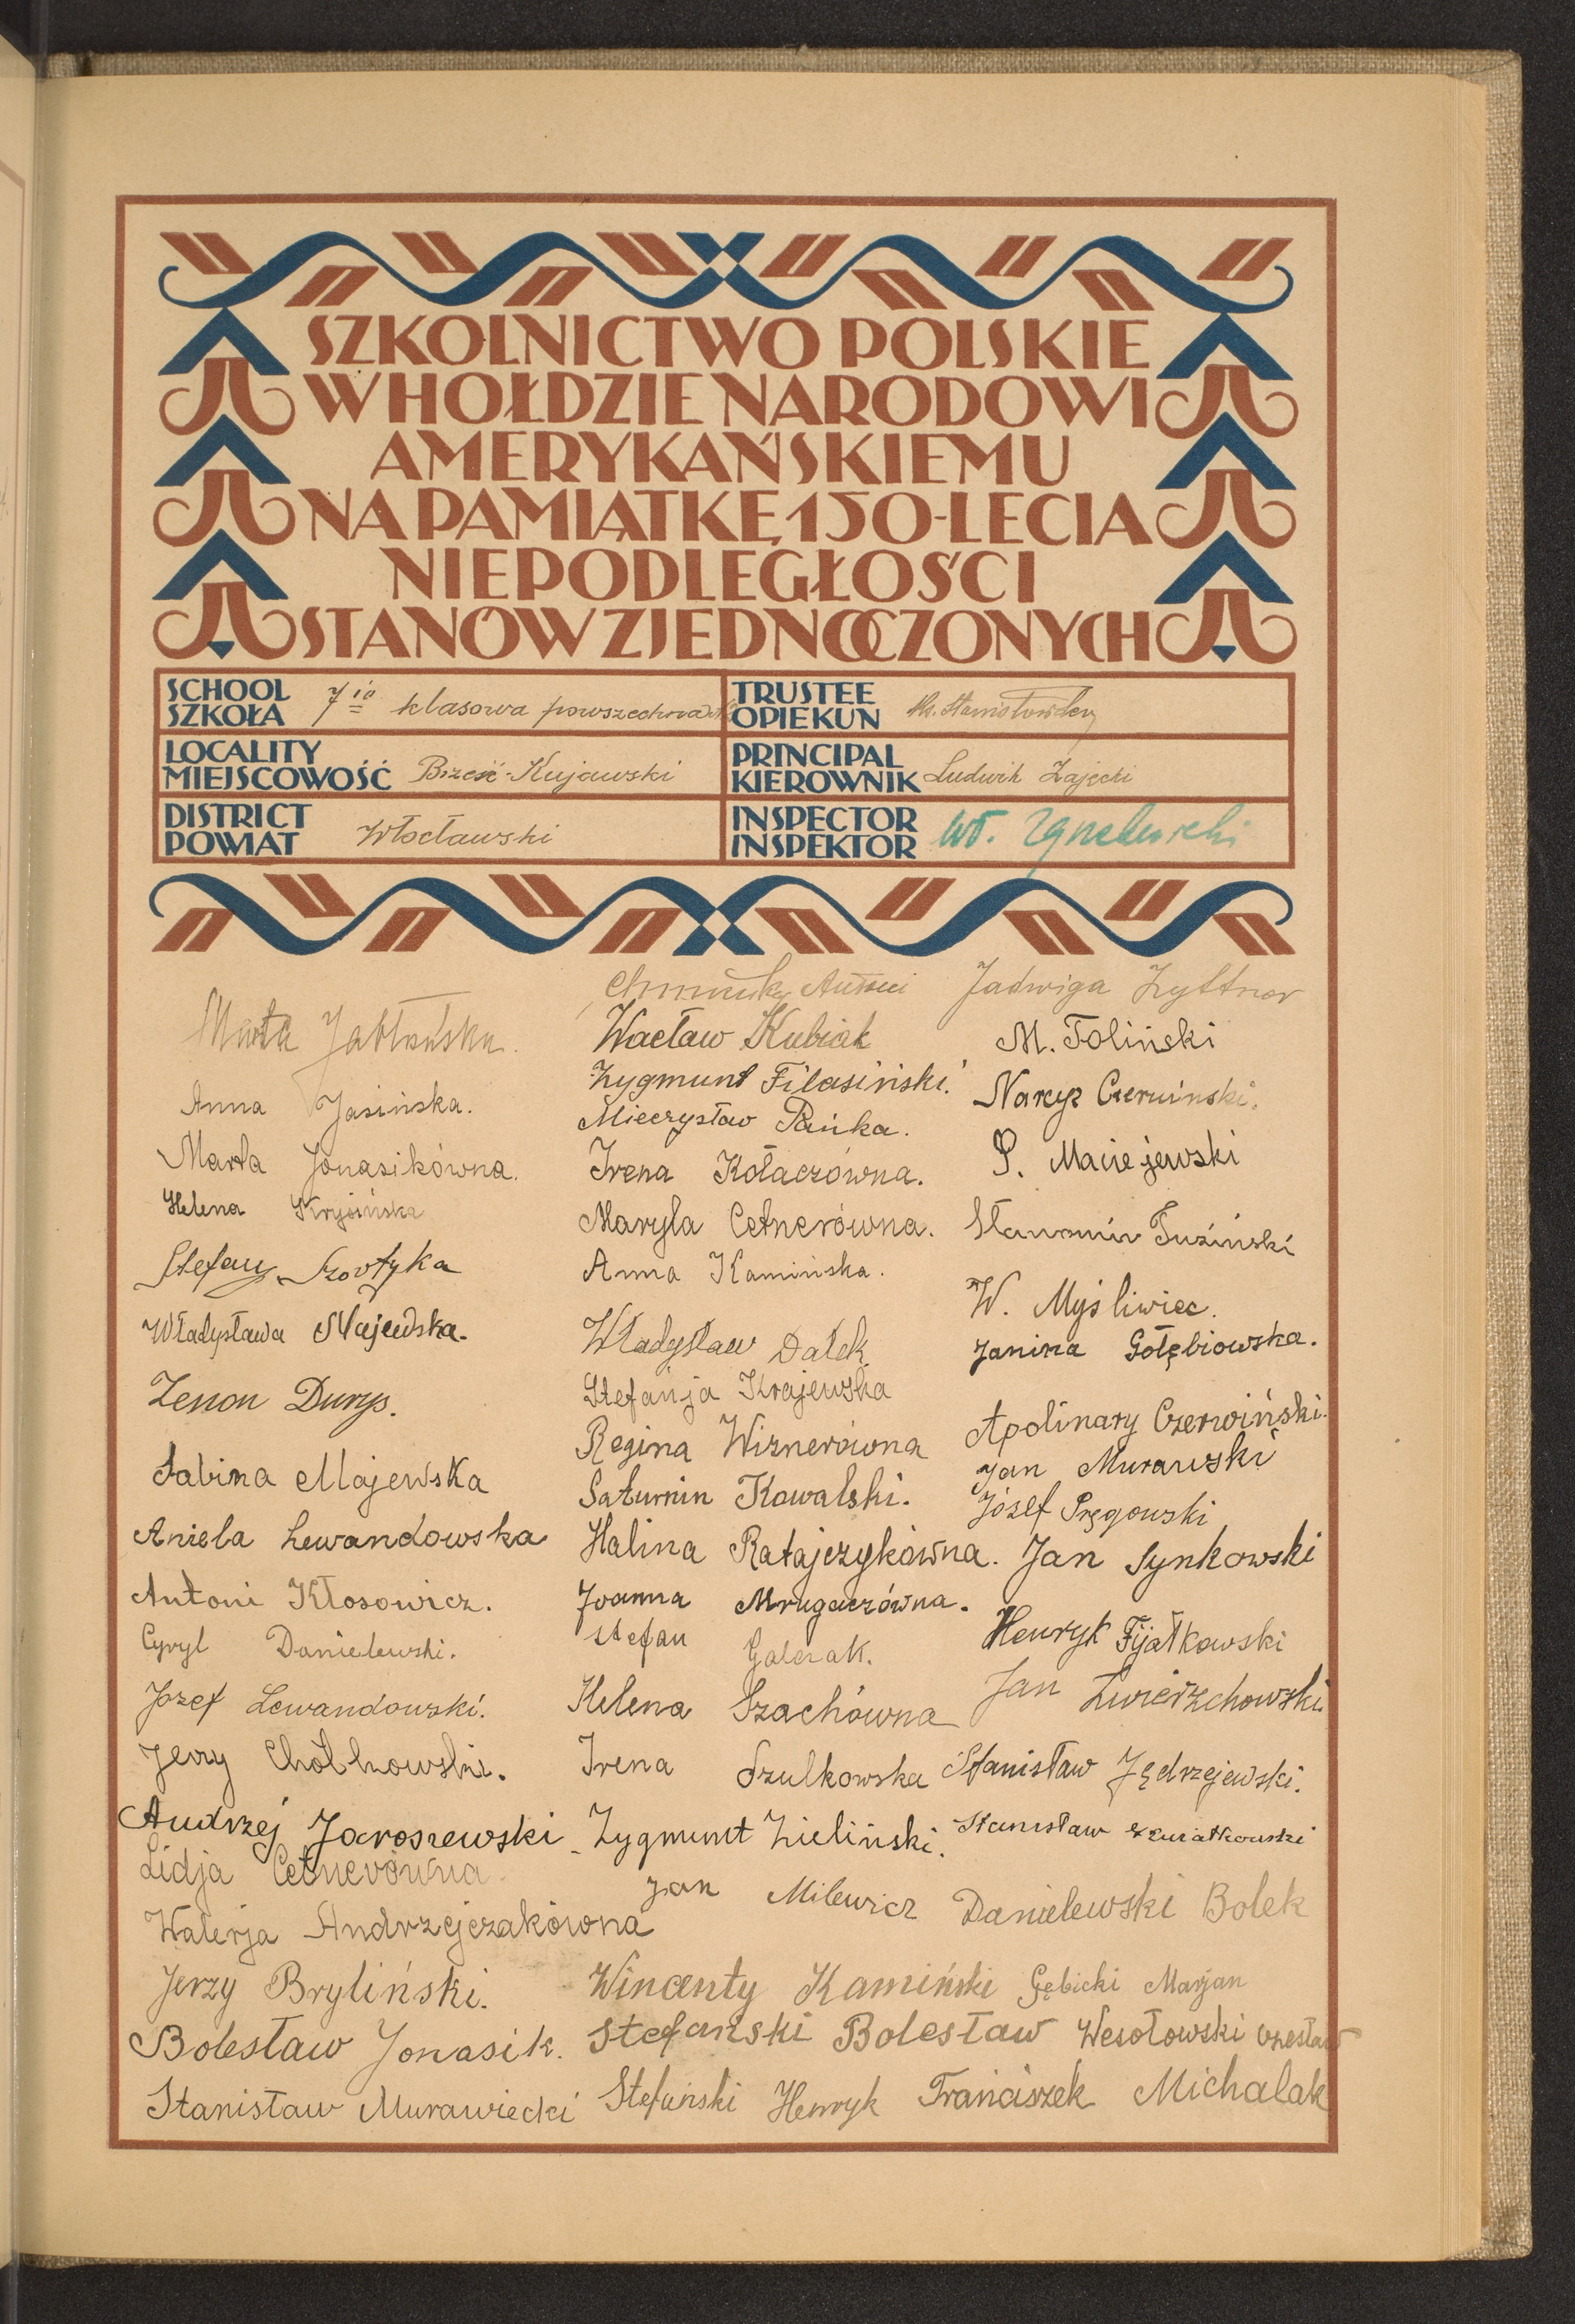 SZKOLNICTWO POLSKIE
W HOŁDZIE NARODOWI
AMERYKAŃSKIEMU
NA PAMIĄTKĘ 150-LECIA
NIEPODLEGŁOŚCI
STANÓW ZJEDNOCZONYCH
SCHOOL
SZKOŁA
7io klasowa powszechna
TRUSTEE
OPIEKUN
LOCALITY
MIEJSCOWOŚĆ
Brześć-Kujawski
PRINCIPAL
KIEROWNIK
Ludwik Zajęcki
DISTRICT
POWIAT
Włocławski
INSPECTOR
INSPEKTOR
Wł.
Marta Jabłońska.
Anna Jasińska.
Marta Jonasikówna.
Helena Krysińska
Stefan Szortyka
Władysława Majewska.
Zenon Durys.
Sabina Majewska
Aniela Lewandowska
Antoni Kłosowicz.
Cyryl Danielewski.
Józef Lewandowski.
Jerzy
Andrzej Jaroszewski
Lidja Cetnerówna.
Walerja Andrzejczakówna
Jerzy Bryliński.
Bolesław Jonasik.
Stanisław Murawiecki
Antoni
Wacław Kubiak
Zygmunt Filasiński.
Mieczysław Pańka.
Irena Kołaczówna.
Maryla Cetnerówna.
Anna Kamińska.
Władysław Dałek
Stefanja Krajewska
Regina Wiznerówna
Saturnin Kowalski.
Halina Ratajczykówna.
Joanna Mrugaczówna.
Stefan Galczak.
Helena Szachówna
Irena Szulkowska
Zygmunt Zieliński.
Jan Milewicz
Wincenty Kamiński
Stefański Bolesław
Stefański Henryk
Jadwiga Zyttner
M. Toliński
Narcyz Czerwiński.
P. Maciejewski
Sławomir Tuziński
W. Myśliwiec.
Janina Gołębiowska.
Apolinary Czerwiński.
Jan Murawski
Józef Pręgowski
Jan Synkowski
Henryk Fijałkowski
Jan Zwierzchowski
Stanisław Jędrzejewski.
Stanisław Kwiatkowski
Danielewski Bolek
Gębicki Marjan
Wesołowski Czesław
Franciszek Michalak